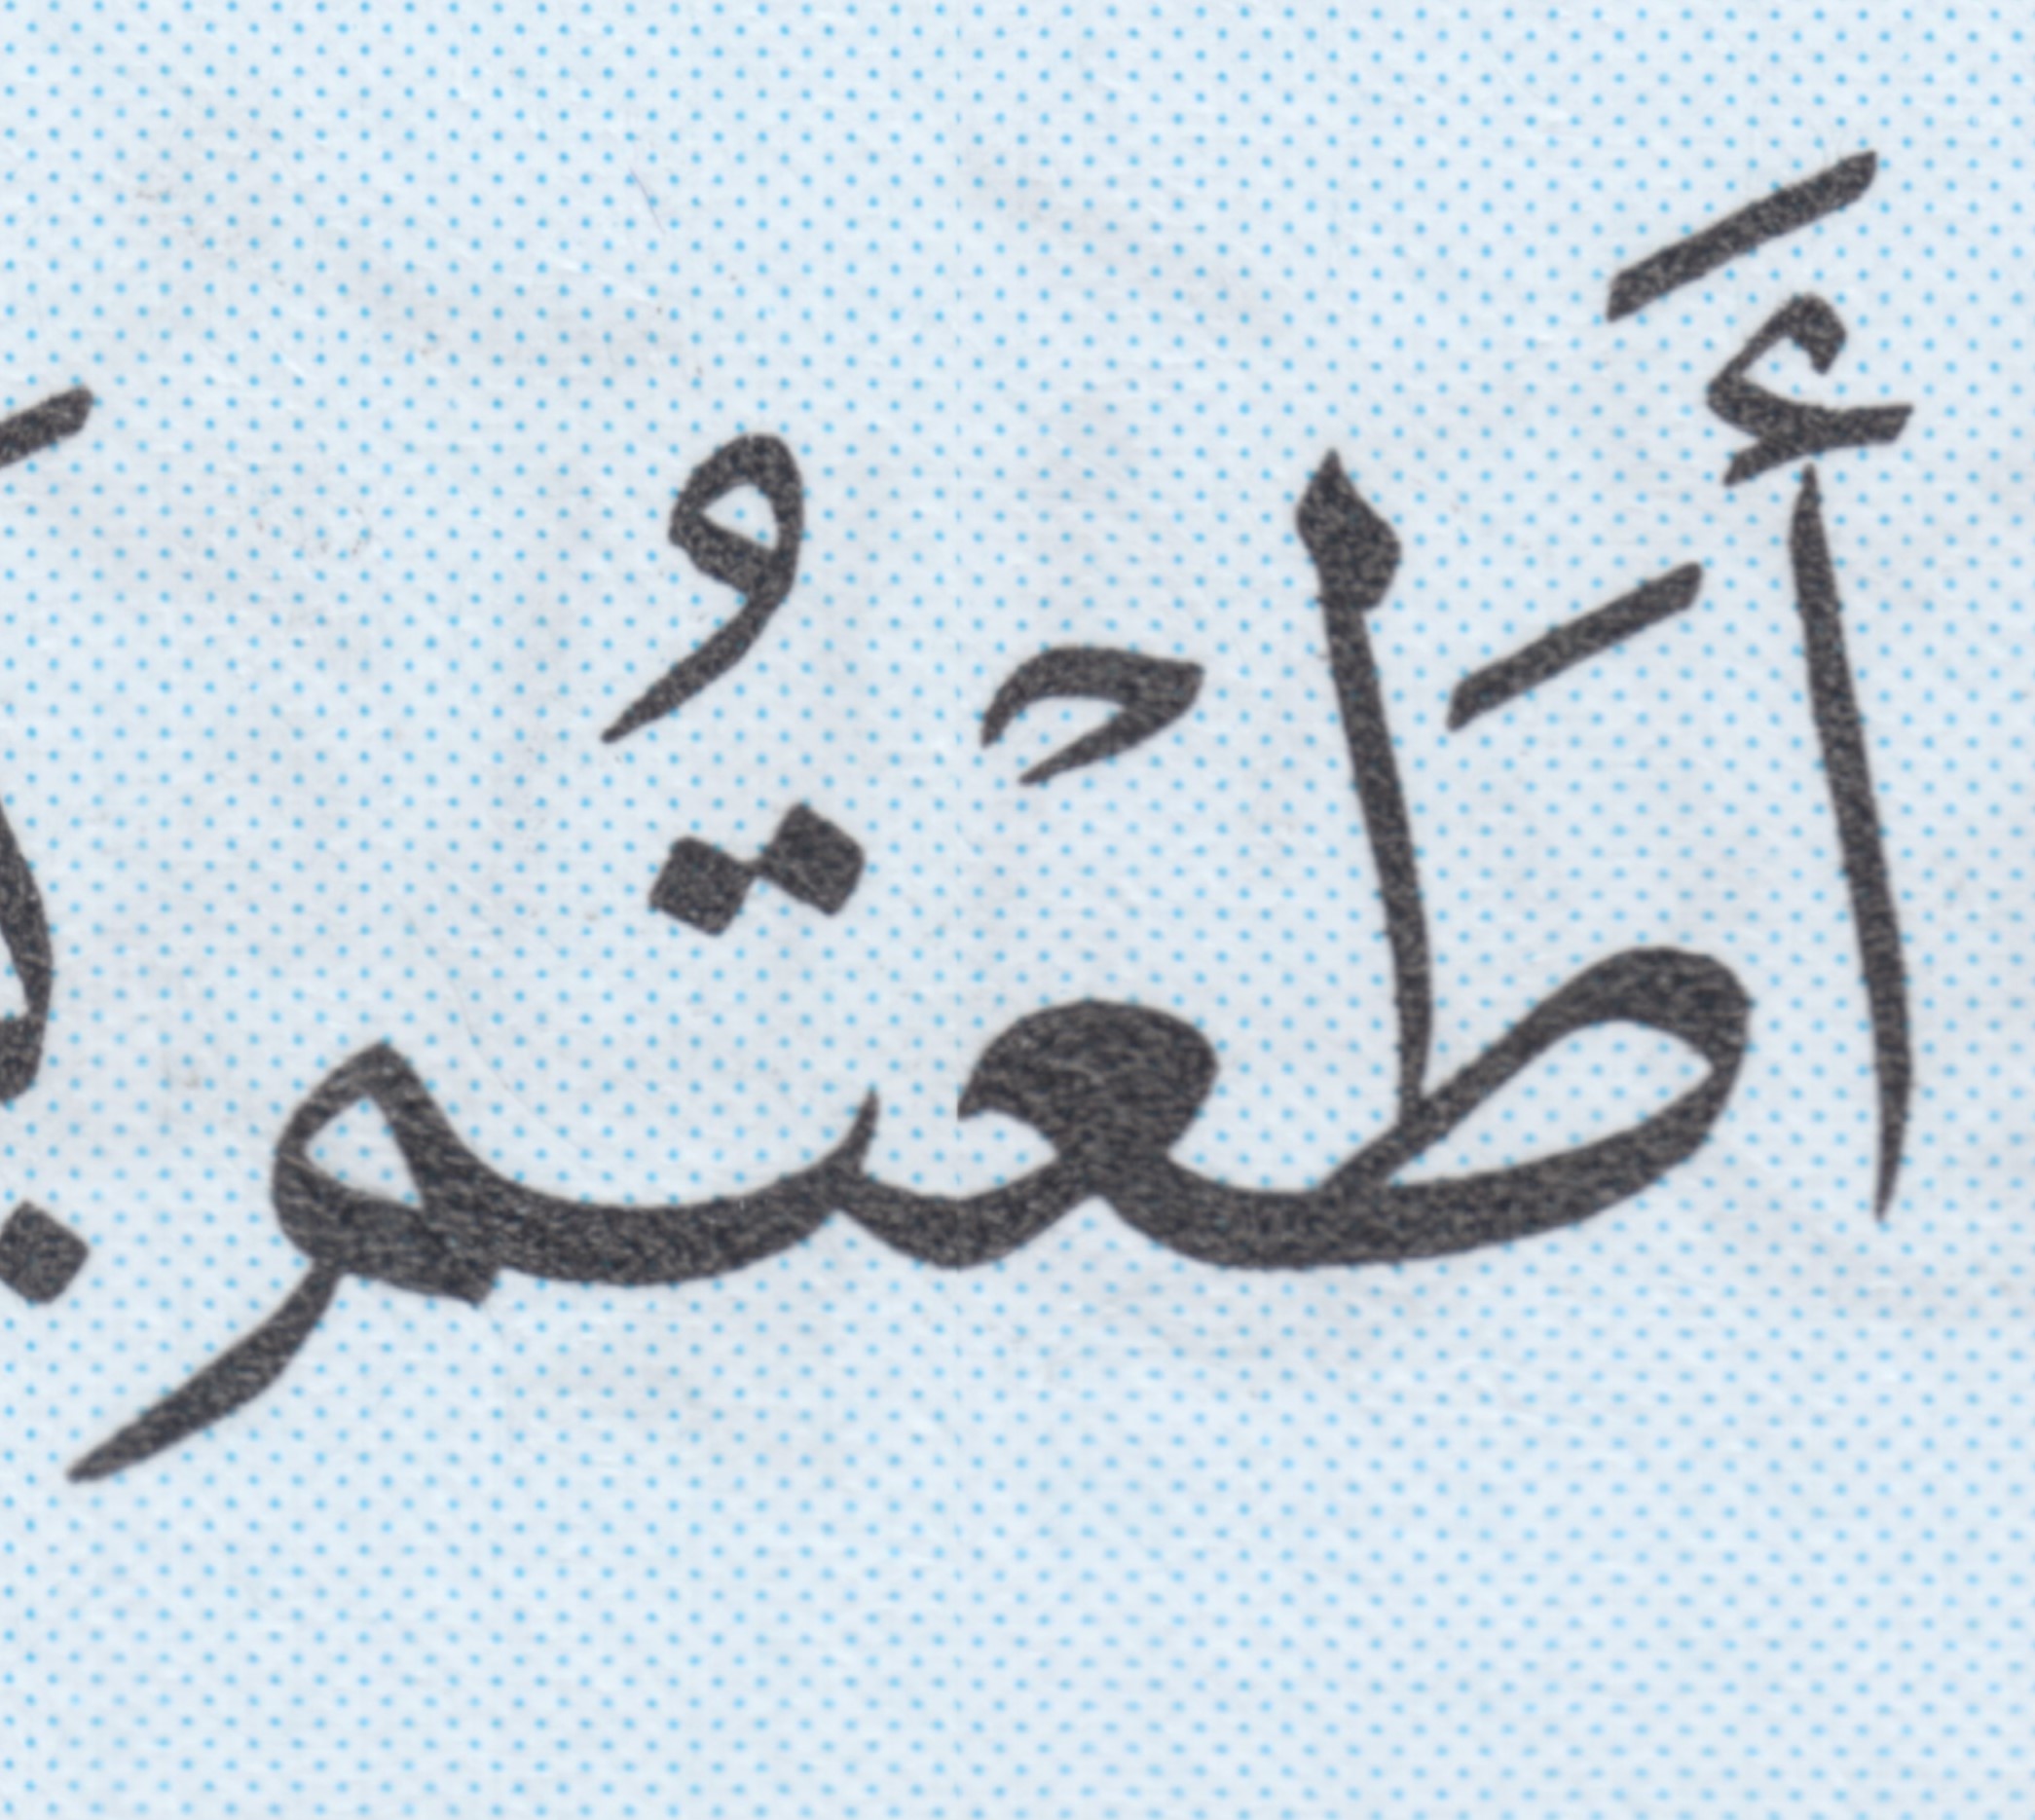 أَطَعْتُم